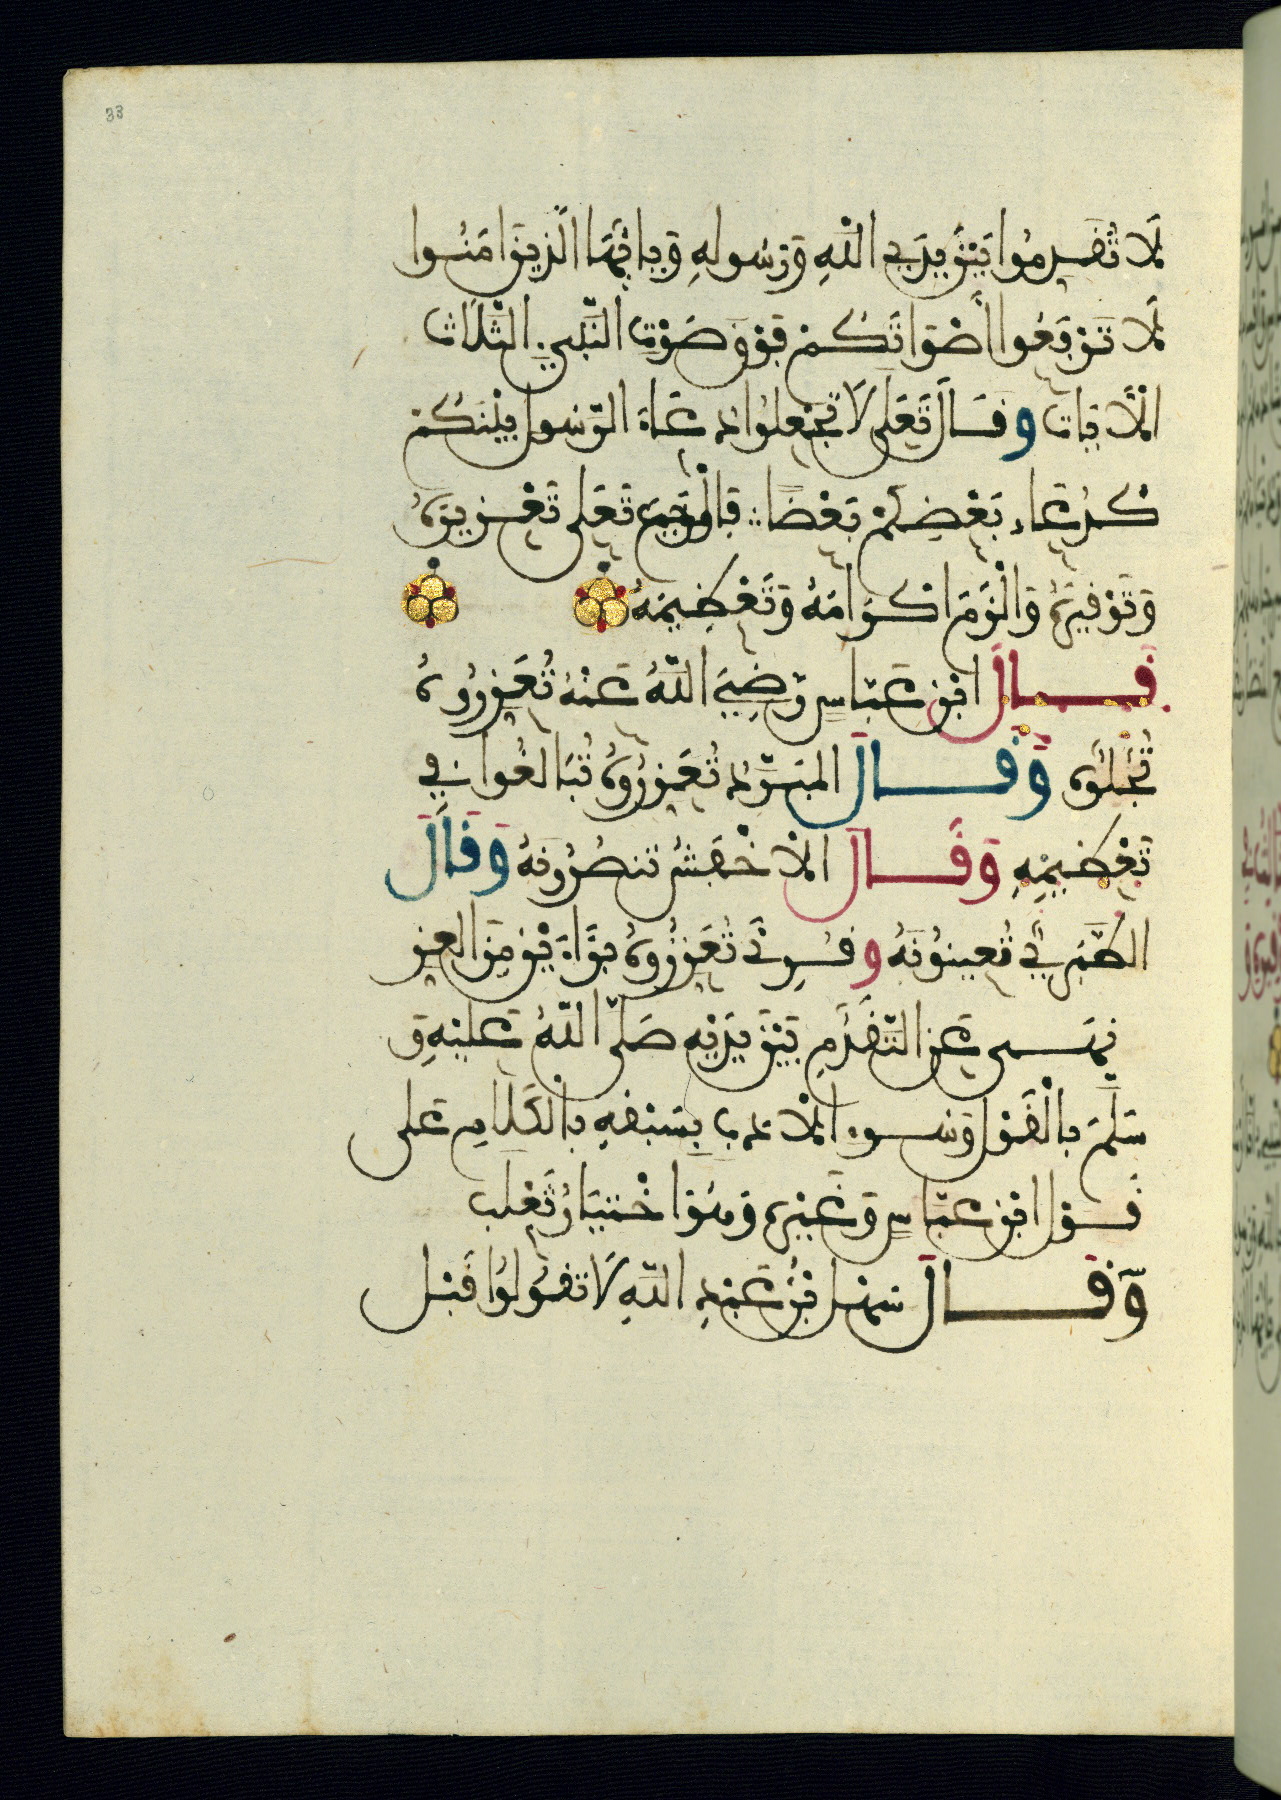 33
لَا تُقَدِّمُوا بَيْنَ يَدَيِ اللَّهِ وَرَسُولِهِ وَيَا أَيُّهَا الَّذِينَ ءَامَنُوا
لَا تَرْفَعُوا أَصْوَاتَكُمْ فَوْقَ صَوْتِ النَّبِيِّ الثَّلَاثَ
الْآيَاتِ وَقَالَ تَعَلَى لَا تَجْعَلُوا دُعَاءَ الرَّسُولِ بَيْنَكُمْ
كَدُعَاءِ بَعْضِكُمْ بَعْضًا فَأَوْجَبَ تَعَلَى تَعْزِيزَهُ
وَتَوْقِيرَهُ وَأَلْزَمَ إِكْرَامَهُ وَتَعْظِيمَهُ
قَالَ ابْنُ عَبَّاسٍ رَضِيَ اللَّهُ عَنْهُ تُعَزِّرُوهُ
تُجِلُّوهُ وَقَالَ الْمُبَرِّدُ تُعَزِّرُوهُ تُبَالِغُوا فِي
تَعْظِيمِهِ وَقَالَ الْأَخْفَشُ تَنْصُرُونَهُ وَقَالَ
الطَّبَرِيُّ تُعِينُونَهُ وَقُرِئَ تُعَزِّزُوهُ بِزَاءَيْنِ مِنَ الْعِزِّ
نُهِيَ عَنِ التَّقَدُّمِ بَيْنَ يَدَيْهِ صَلَّى اللَّهُ عَلَيْهِ وَ
سَلَّمَ بِالْقَوْلِ وَسُوءِ الْأَدَبِ بِسَبْقِهِ بِالْكَلَامِ عَلَى
قَوْلِ ابْنِ عَبَّاسٍ وَغَيْرِهِ وَهُوَ اخْتِيَارُ ثَعْلَبٍ
وَقَالَ سَهْلُ بْنُ عَبْدِ اللَّهِ لَا تَقُولُوا قَبْلَ